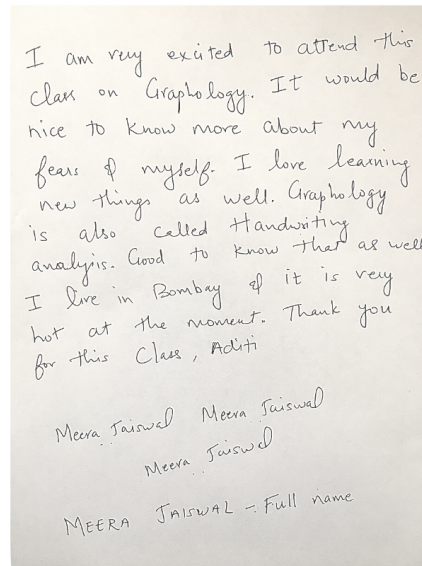 I am very excited to attend this
class on Graphology. It would be
nice to know more about my
fears & myself. I love learning
new things as well. Graphology
is also called Handwriting
analysis. Good to know that as well
I live in Bombay & it is very
hot at the moment. Thank you
for this Class, Aditi
Meera Jaiswal Meera Jaiswal
Meera Jaiswal
MEERA JAISWAL - Full name